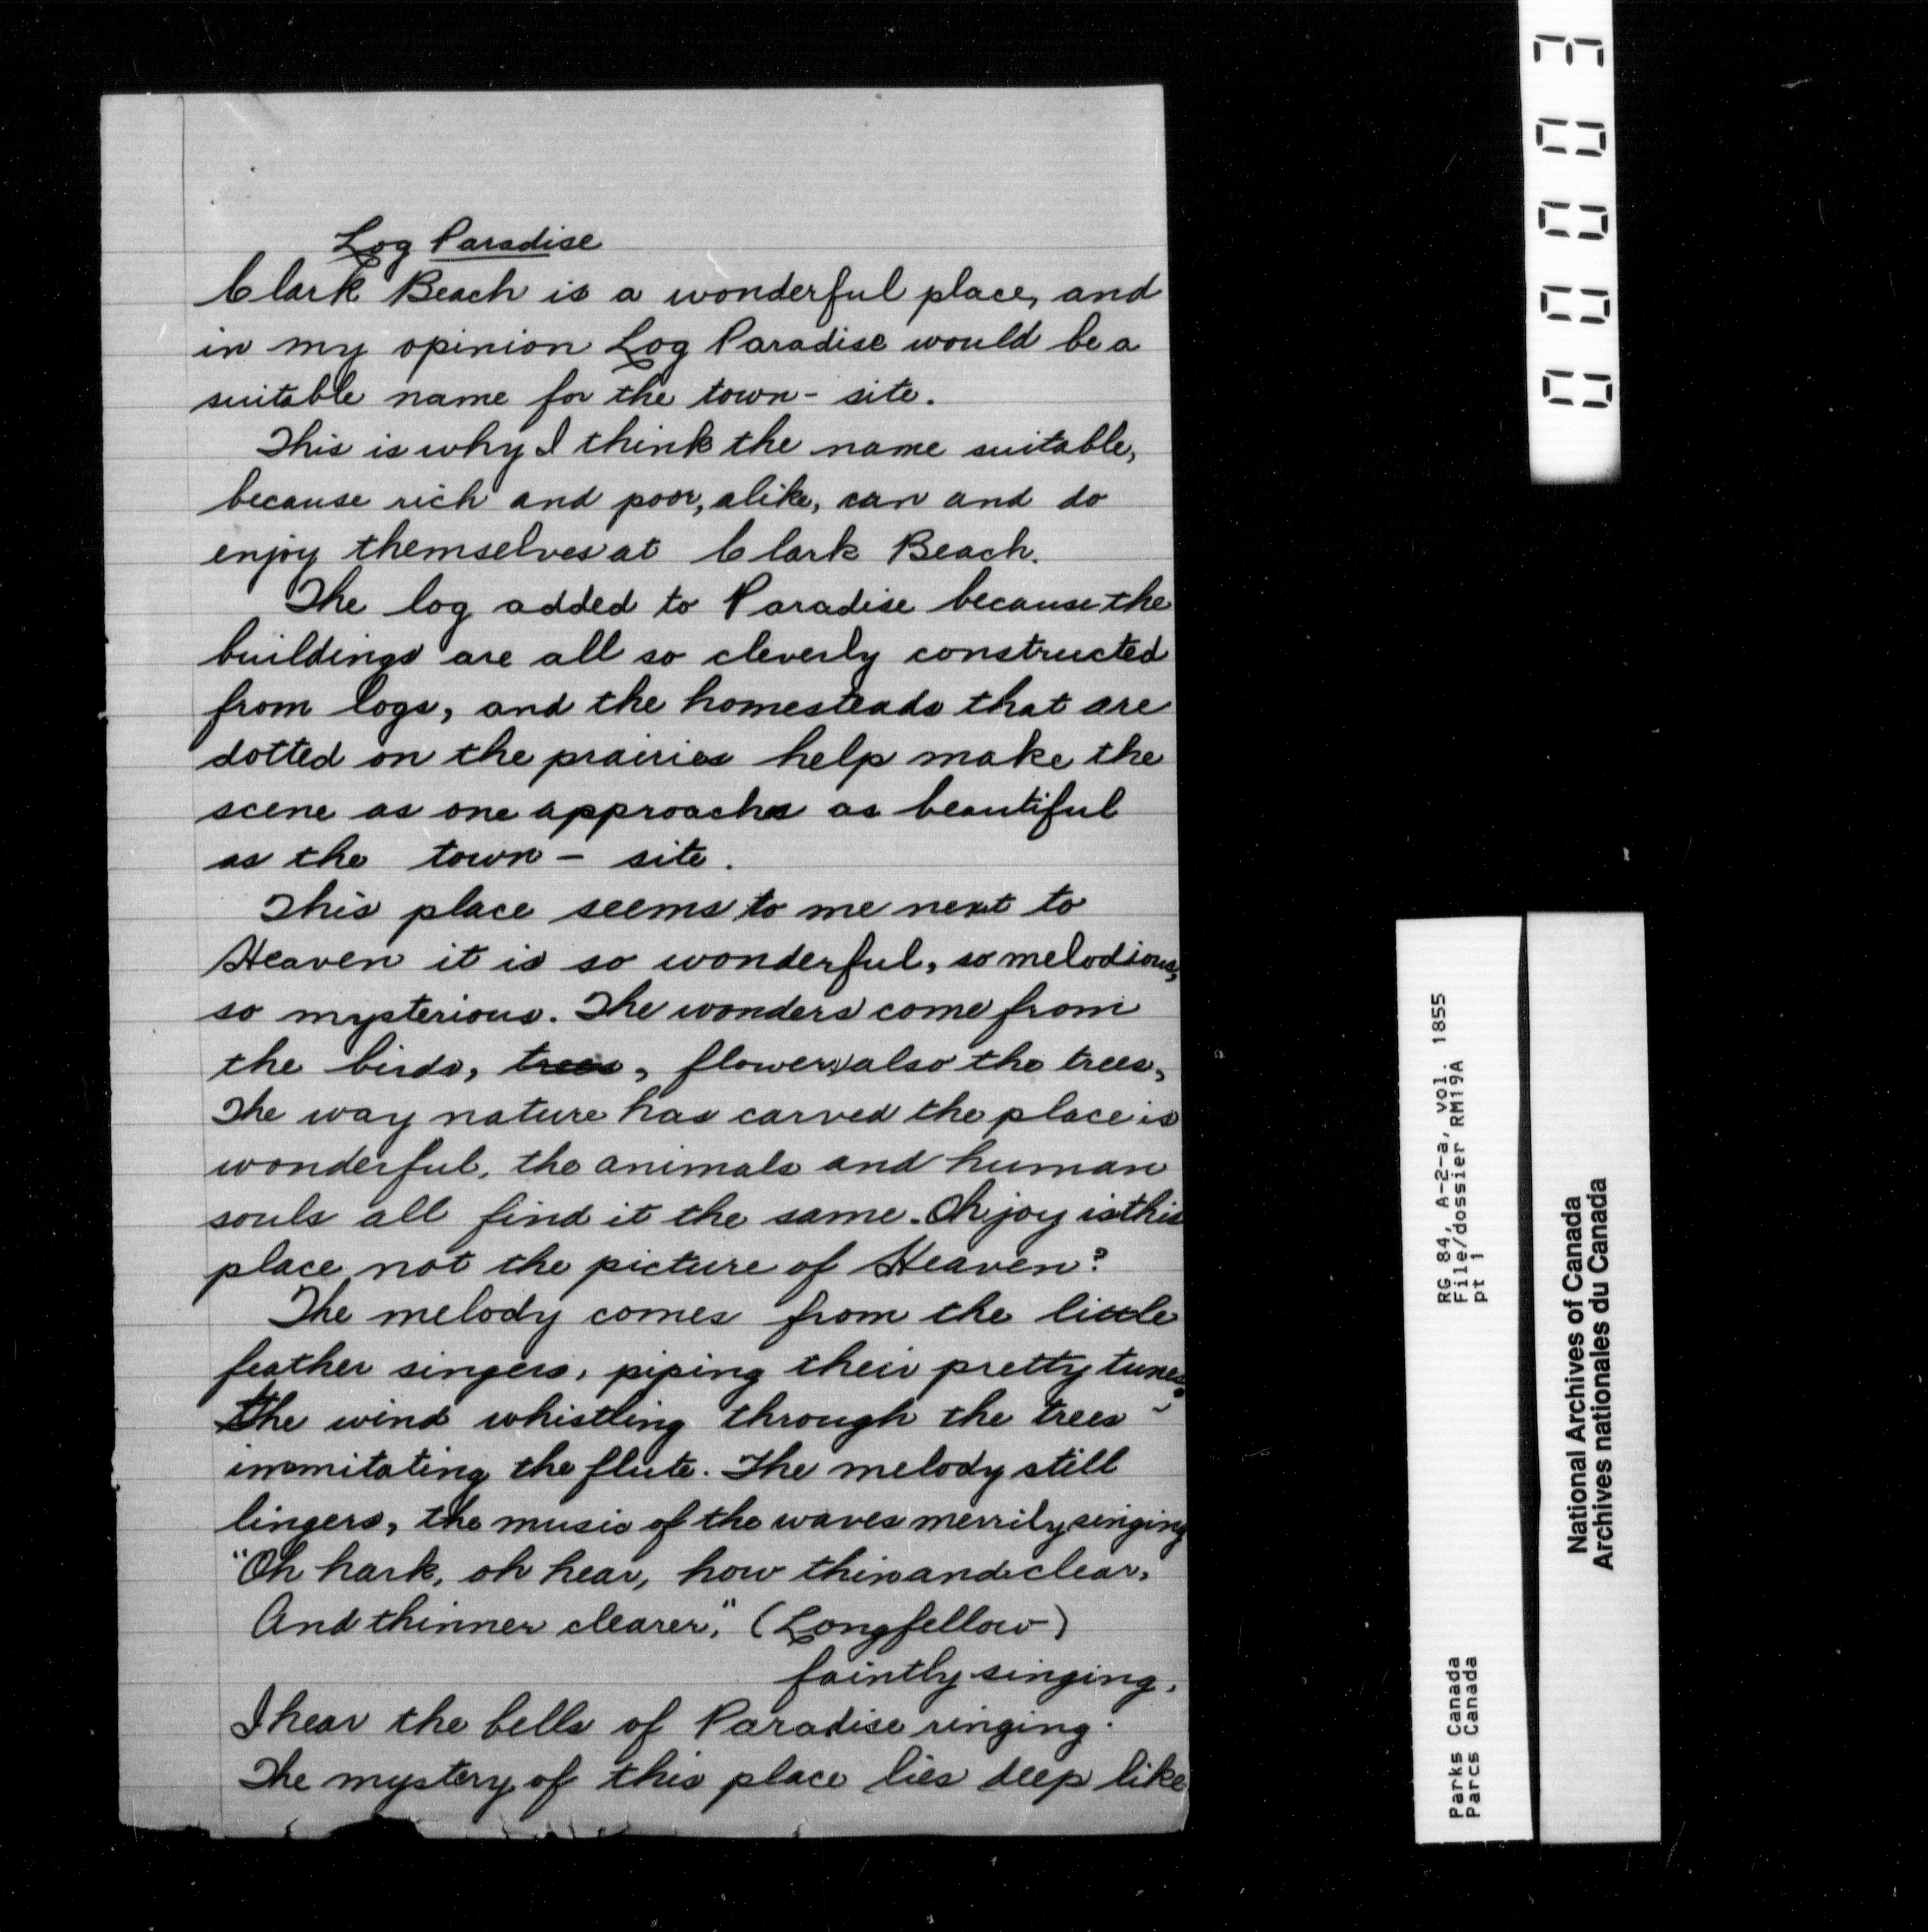 Log Paradise
Clark Beach is a wonderful place, and
in my opinion Log Paradise would be a
suitable name for the town- site.
This is why I think the name suitable,
because rich and poor, alike, can and do
enjoy themselves at Clark Beach.
The log added to Paradise because the
buildings are all so cleverly constructed
from logs, and the homesteads that are
dotted on the prairies help make the
scene as one approaches as beautiful
as the town - site.
This place seems to me next to
Heaven it is so wonderful, so melodious,
so mysterious. The wonders come from
the birds, trees, flowers, also the trees,
The way nature has carved the place is
wonderful, the animals and human
souls all find it the same. Oh joy is this
place not the picture of Heaven?
The melody comes from the little
feather singers, piping their pretty tunes.
The wind whistling through the trees
immitating the flute. The melody still
lingers, the music of the waves merrily singing
"Oh hark, oh hear, how thin and clear,
And thinner clearer," (Longfellow)
faintly singing,
I hear the bells of Paradise ringing.
The mystery of this place lies deep like
00003
RG 84, A-2-a, vol. 1855
File/dossier RM19A
pt 1
Parks Canada
Parcs Canada
National Archives of Canada
Archives nationales du Canada